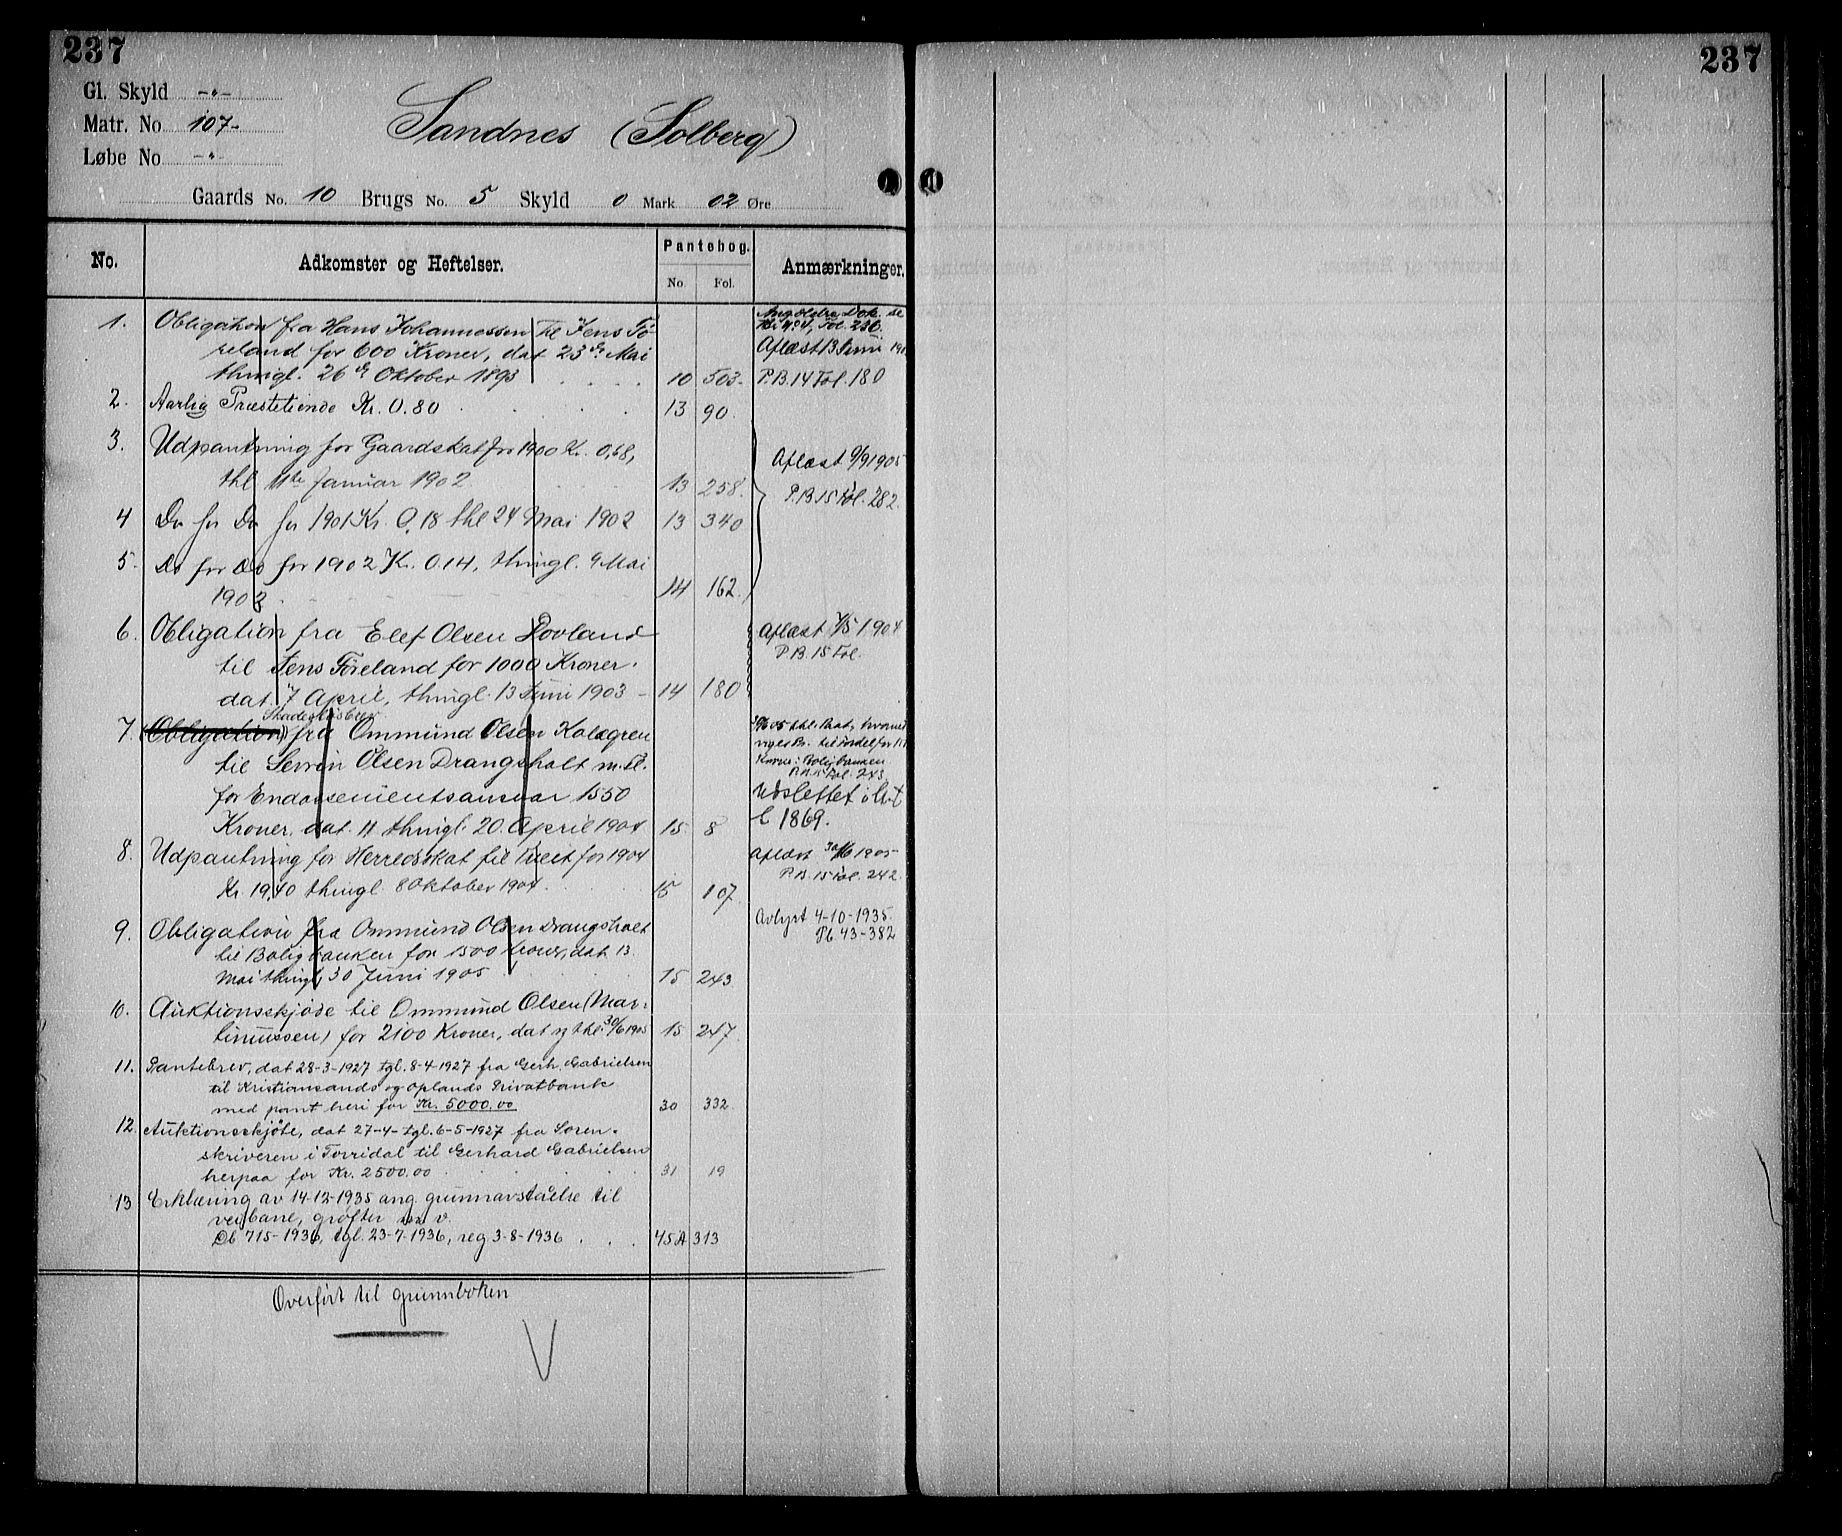 237
237
Gl. Skyld -"-
Matr. No 107-
Løbe No -"-
Sandnes (Solberg)
Gaards No. 10 Brugs No. 5 Skyld 0 Mark 02 Øre
No. Adkomster og Heftelser. Pantebog. No. Fol. Anmærkninger.
1. Obligation fra Hans Johannessen til Jens Fø-
reland for 600 Kroner, dat 23de Mai
thingl. 26de Oktober 1893 10 503.
Angældre Dok. se
Fol. 236.
Aflæst 13 Juni
P.B. 14 Fol. 180
2. Aarlig Præstetiende Kr. 0.80 13 90.
3. Udpantning for Gaardskat for 1900 Kr. 0,68,
thl 11te Januar 1902 13 258.
Aflæst 9/9 1905
P.B. 15 Fol. 282.
4 Do for Do for 1901 Kr. 0,18 thl 24 Mai 1902 13 340
5. Do for Do for 1902 Kr. 0.14, thingl. 9 Mai
1903 14 162.
6. Obligation fra Elef Olsen Hovland
til Jens Føreland for 1000 Kroner.
dat. 7 April, thingl. 13 Juni 1903 - 14 180
Aflæst 7/5 1904
P.B. 15 Fol.
Skadesløsbrev
7. (Obligation) fra Ommund Olsen Kalsgren
til Severin Olsen Drangsholt m. fl.
for Endossementsansvar 1550
Kroner, dat. 11 thingl. 20. April 1904 15 8
Boligbanken
P.B. 15 Fol. 243
Udslettet i
L 1869.
8. Udpantning for Herredsskat til Tveit for 1904
Kr. 19,40 thingl. 8 Oktober 1904. 15 107
Aflæst 30/6 1905
P.B. 15 Fol. 242.
9. Obligation fra Ommund Olsen Drangsholt
til Boligbanken for 1500 Kroner, dat 13
Mai thingl. 30 Juni 1905 15 243
Avlyst 4-10-1935.
Pb. 43-382
10. Auktionsskjøde til Ommund Olsen (Mar-
tinussen) for 2100 Kroner, dat og thl. 30/6 1905 15 247
11. Pantebrev, dat 28-3-1927 tgl. 8-4-1927 fra Gerh. Gabrielsen
til Kristiansands og Oplands Privatbank
med pant heri for Kr. 5000.00 30 332
12. Auktionsskjøte, dat 27-4- tgl. 6-5-1927 fra Soren-
skriveren i Torridal til Gerhard Gabrielsen
herpaa for Kr. 2500.00 31 19
13 Erklæring av 14-12-1935 ang. grunnavståelse til
veibane, grøfter m. v.
Db 715-1936, tgl. 23-7-1936, reg. 3-8-1936 . . . 45A 313
Overført til grunnboken
V